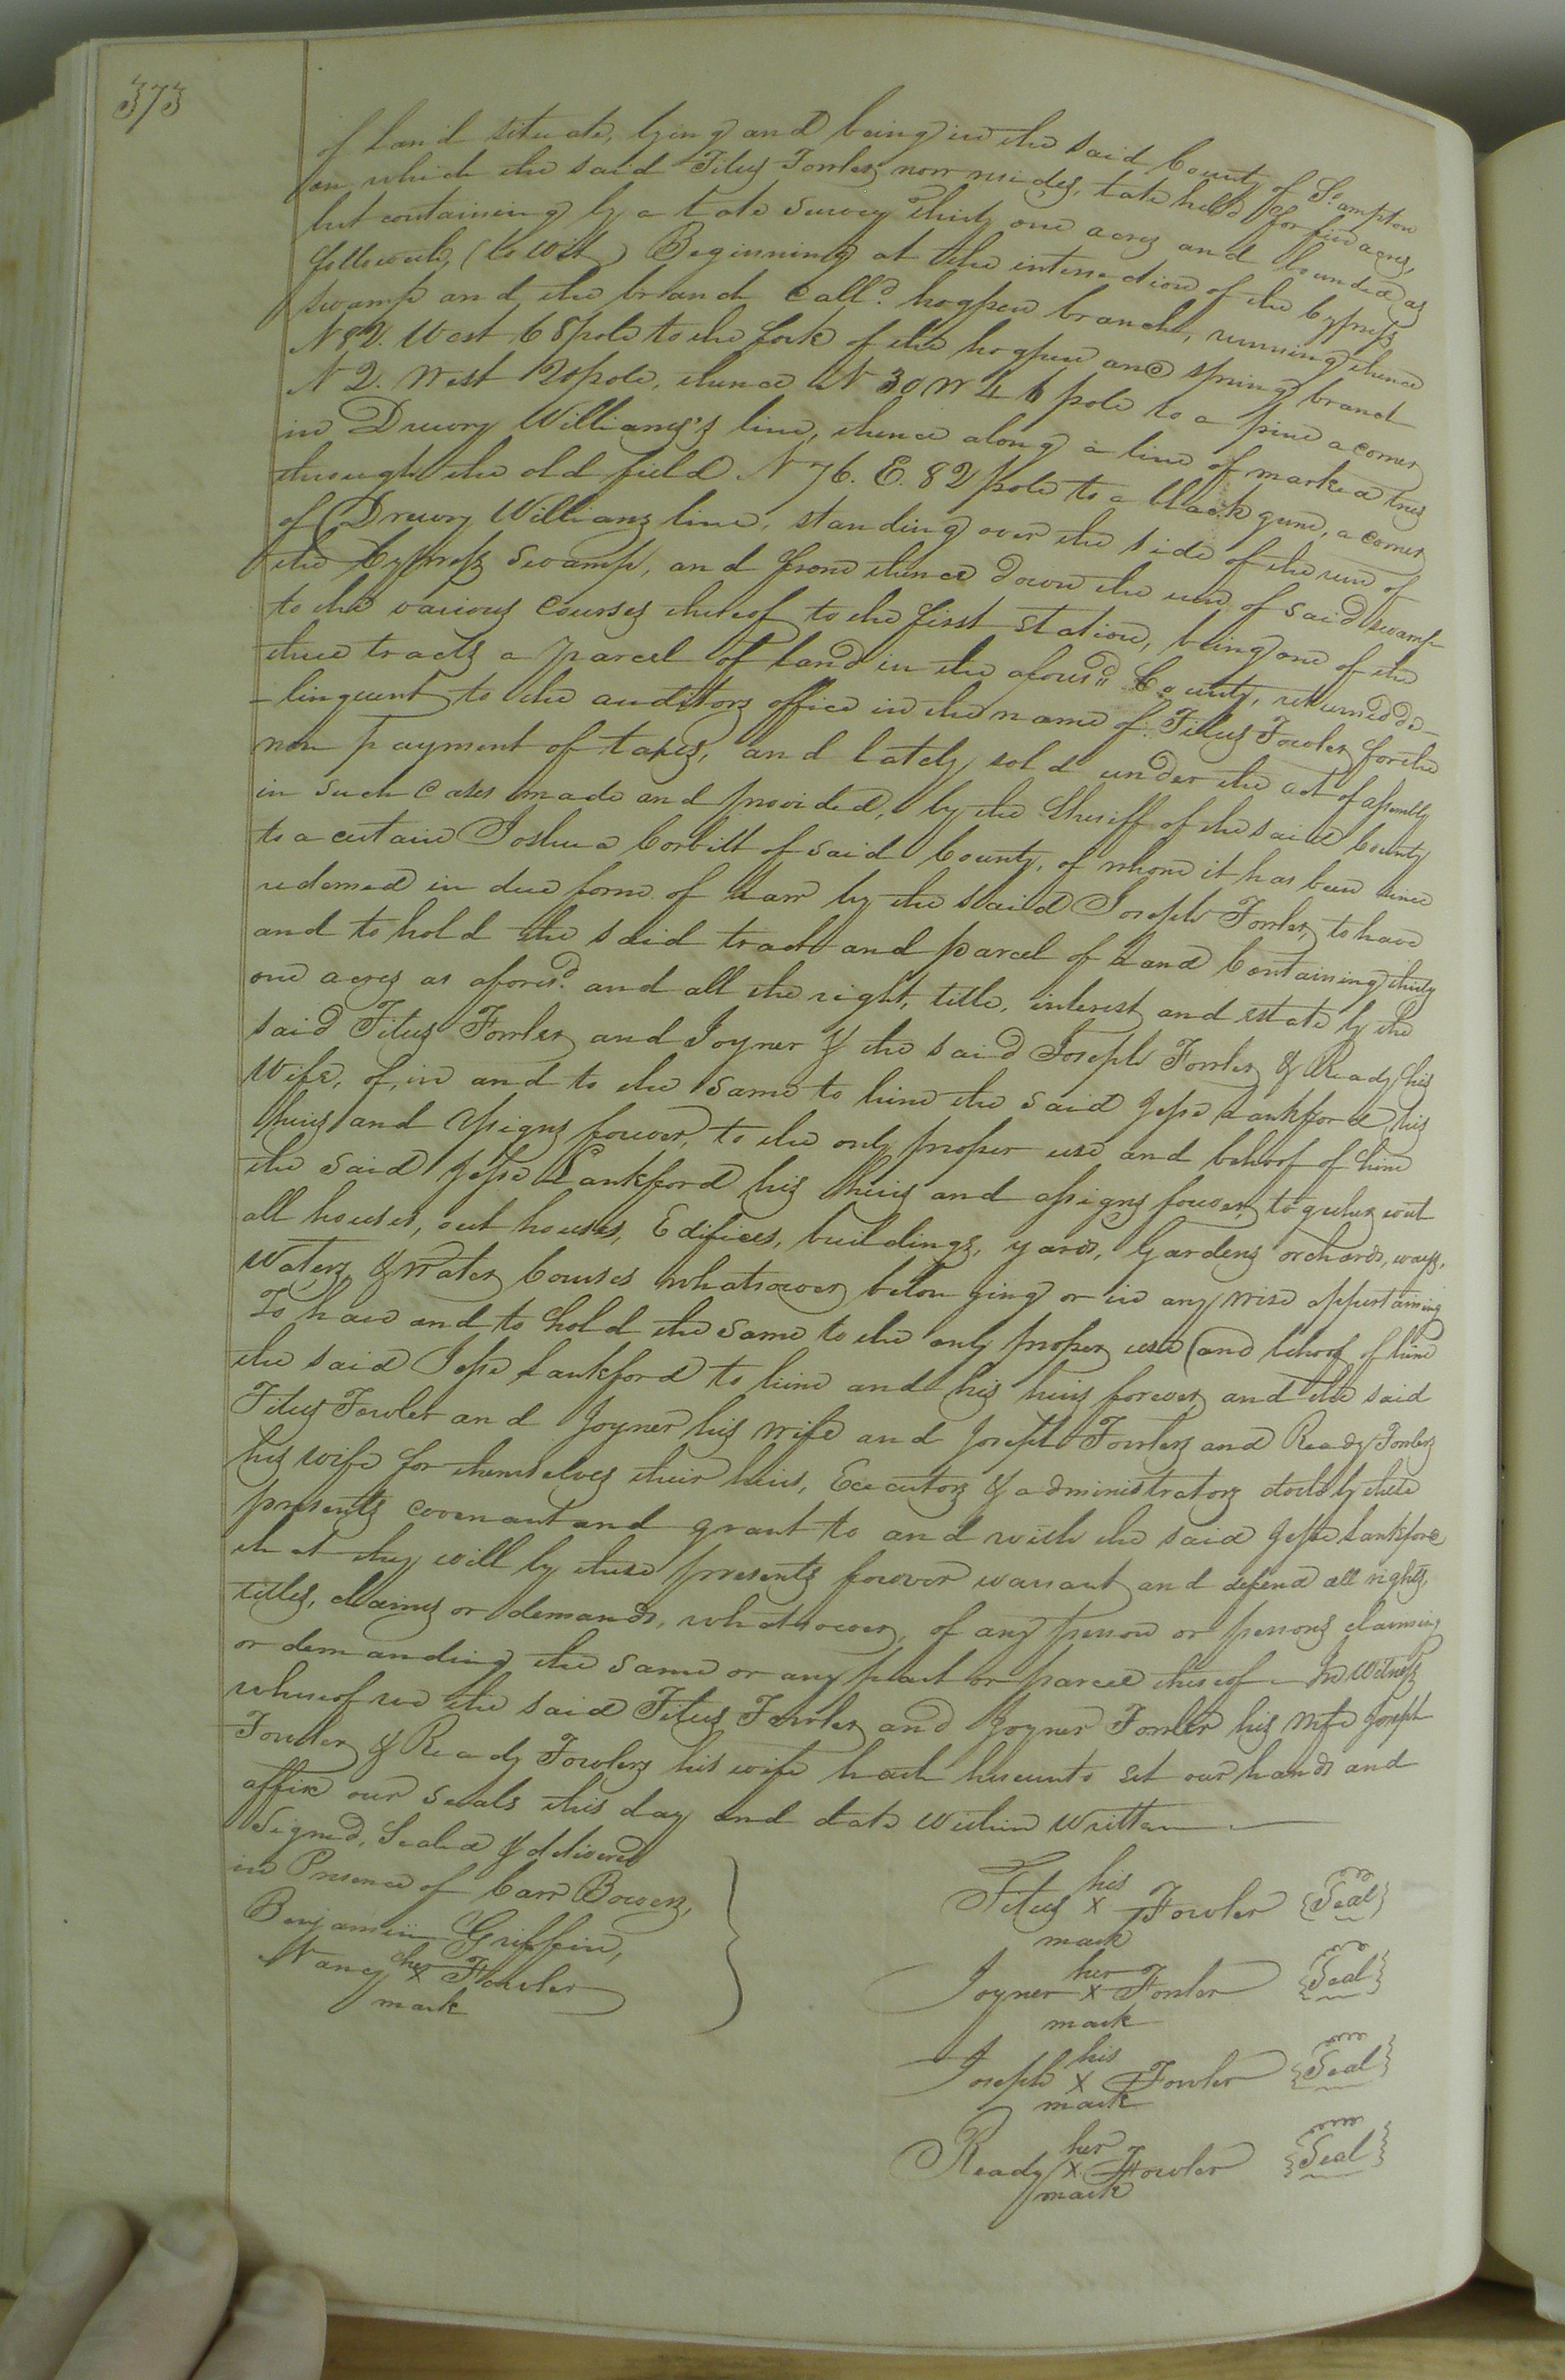 373
of land situate, lying and being in the said County of So.ampton
on which the said Titus Fowler now resides, late held for five acres,
but containing by a late survey thirty one acres and bounded as
followeth, (to wit) Beginning at the intersection of the Cypress
swamp and the branch call.d hogpen branch, running thence
N 82. West 68 pole to the fork of the hogpen and spring branch
N 2. West 20 pole, thence N 30 W 46 pole to a pine a corner
in Drewry Williams's line, thence along a line of marked trees
through the old field N 76. E. 82 pole to a black gum, a corner
of Drewry Williams line, standing over the side of the run of
the Cypress Swamp, and from thence down the run of said swamp
to the various courses thereof to the first station, being one of the
three tracts a parcel of land in the aforesd. County, returned de-
-linquent to the auditors office in the name of Titus Fowler for the
non payment of taxes, and lately sold under the act of assembly
in such cases made and provided, by the Sheriff of the said County
to a certain Joshua Corbitt of said County, of whom it has been since
redemed in due form of Law by the said Joseph Fowler, to have
and to hold the said tract and parcel of Land Containing thirty
one acres as aforesd. and all the right, title, interest and estate by the
said Titus Fowler and Joyner & the said Joseph Fowler & Ready his
Wife, of, in and to the same to him the said Jesse Lankford, his
heirs and assigns forever, to the only proper use and behoof of him
the said Jesse Lankford his heirs and assigns forever, together with
all houses, out houses, Edifices, buildings, yards, Gardens orchards, ways,
Waters, & Water Courses whatsoever belonging or in any wise appertaining
To have and to hold the same to the only proper use and behoof of him
the said Jesse Lankford to him and his heirs forever, and the said
Titus Fowler and Joyner his wife and Joseph Fowler and Ready Fowler
his wife for themselves their heirs, Executors & administrators doth by these
presents covenant and grant to and with the said Jesse Lankford
that they will by these presents forever warrant and defend all rights,
titles, claims or demands, whatsoever, of any person or persons claiming
or demanding the same or any part or parcel thereof - In Witness
whereof we the said Titus Fowler and Joyner Fowler his wife Joseph
Fowler & Ready Fowler his wife hath hereunto set our hands and
affix our seals this day and date within written
Signed, Sealed & delivered
in Presence of Carr Bowers,
Benjamin Griffin,
Nancy her x Fowler
mark
his
Titus x Fowler Seal
mark
her
Joyner x Fowler Seal
mark
his
Joseph x Fowler Seal
mark
her
Ready x Fowler Seal
mark